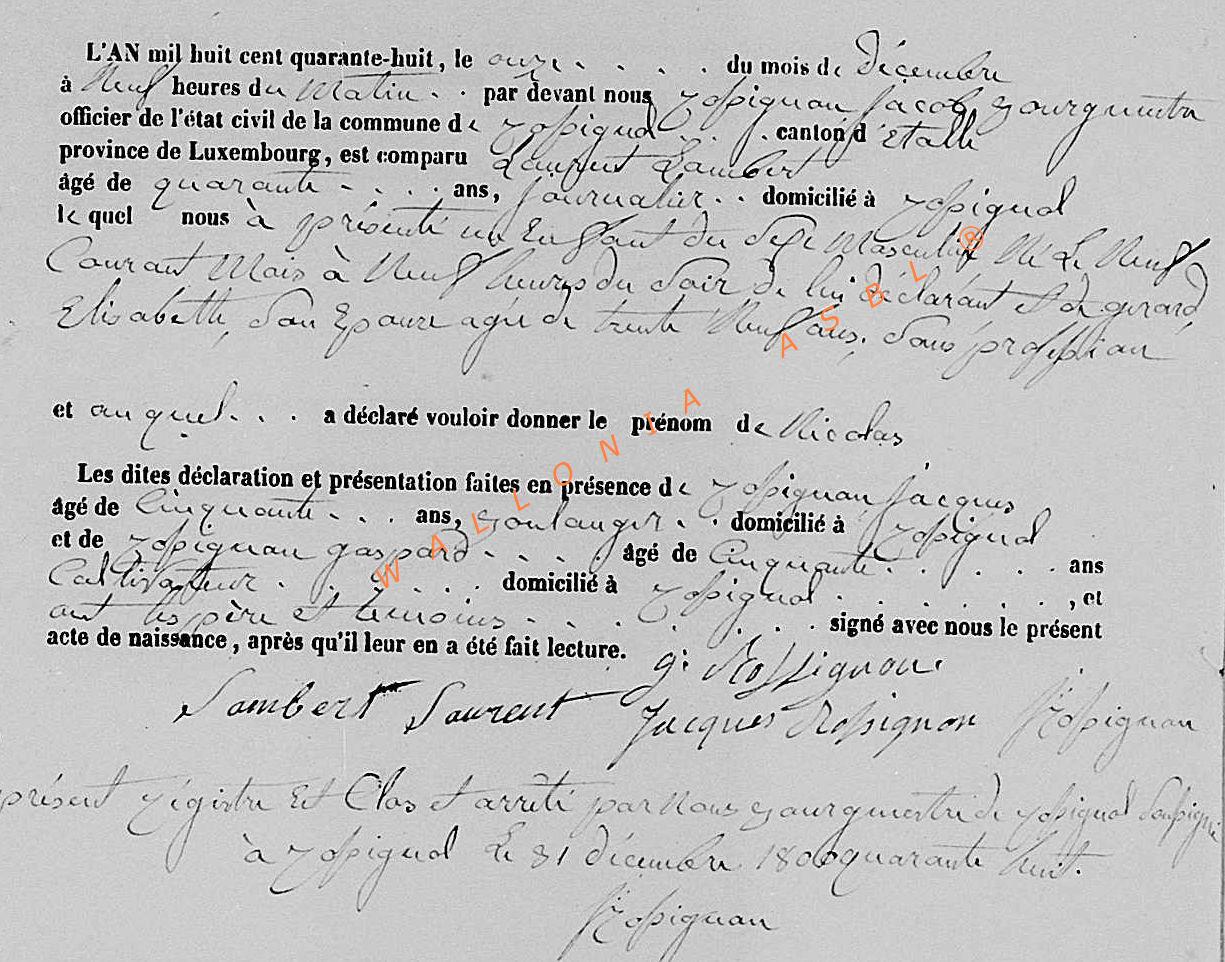 L'AN mil huit cent quarante-huit, le onze . . . . du mois de décembre
à Neuf heures du Matin . . par devant nous rossignon jacob, Bourgmestre
officier de l'état civil de la commune de rossignol . . . canton d'etalle
province de Luxembourg, est comparu Laurent Lambert
âgé de quarante . . . . ans, journalier . . domicilié à rossignol
le quel nous à présenté un Enfant du sexe Masculin Né Le Neuf
Courant Mois à Neuf heures du soir de lui déclarant et de girard,
Elisabette, Son Epouse agée de trente Neuf ans, Sans profession
et auquel . . . a déclaré vouloir donner le prénom de Nicolas
Les dites déclaration et présentation faites en présence de rossignon jacques
âgé de Cinquante . . . ans, Boulanger . . domicilié à rossignol
et de rossignon gaspard . . . . âgé de Cinquante . . . . . ans
Cultivateur . . . . . . domicilié à rossignol . . . . . . . , et
ont les père et témoins . . . . . . . . signé avec nous le présent
acte de naissance, après qu'il leur en a été fait lecture.
g: Rossignon.
Lambert Laurent Jacques Rossignon Rossignon
présent régistre Est Clos et arrêté par Nous Bourgmestre de rossignol Soussigné
à rossignol Le 31 décembre 1800 quarante huit.
Rossignon
WALLONIA ASBL ®